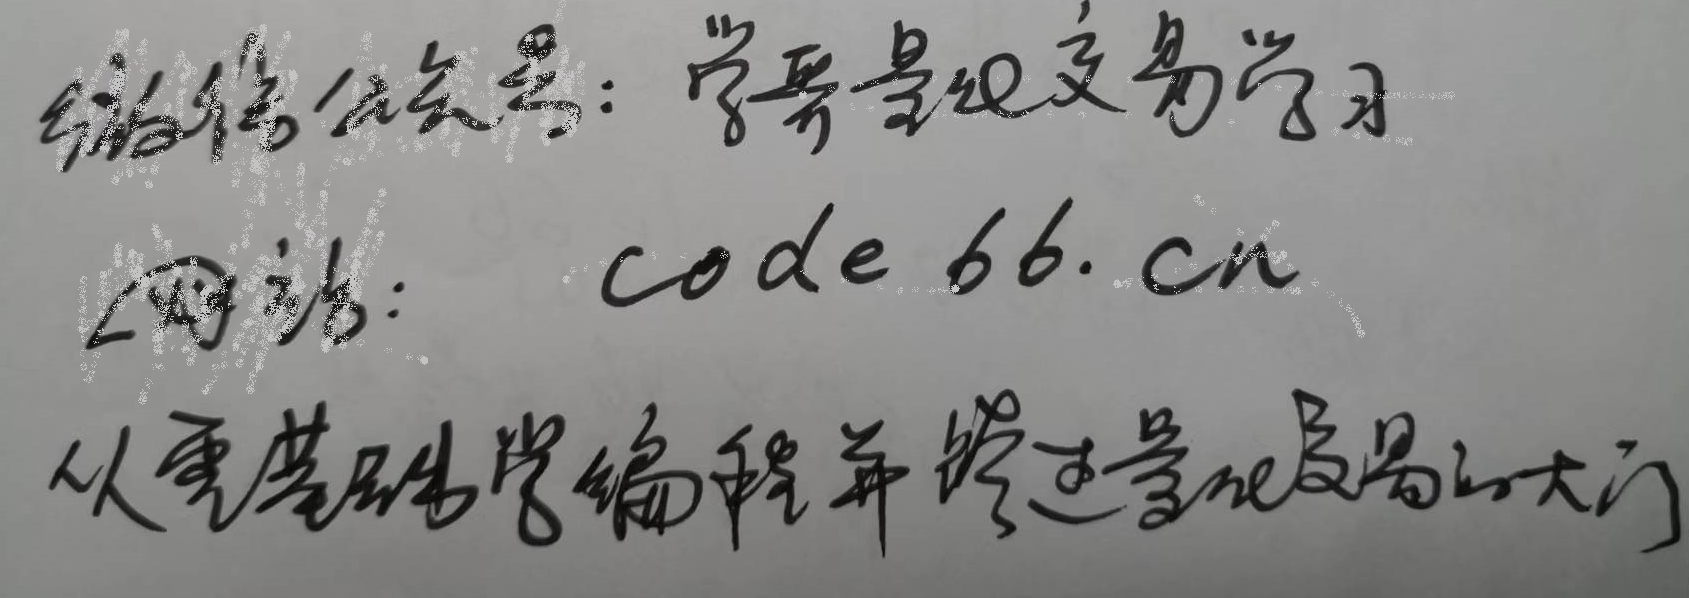 微信公众号：学哥量化交易学习
网站： code66.cn
从零基础学编程并跨过量化交易的大门